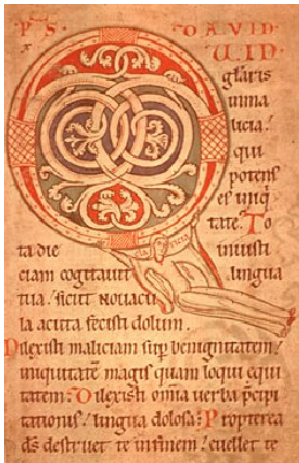 PS DAVID
x UID
glaris
inma
licia /
qui
potens
es iniq̄
tate. To
ta die iniusti
ciam cogitauit lingua
tua / sicut nouacu
la acuta fecisti dolum .
Dilexisti maliciam sup̄ benignitatem /
iniquitatē magis quam loqui equi
tatem : Dilexisti om̄ia uerba p̄cipi
tationis / lingua dolosa : Propterea
ds̄ destruet te infinem / euellet te